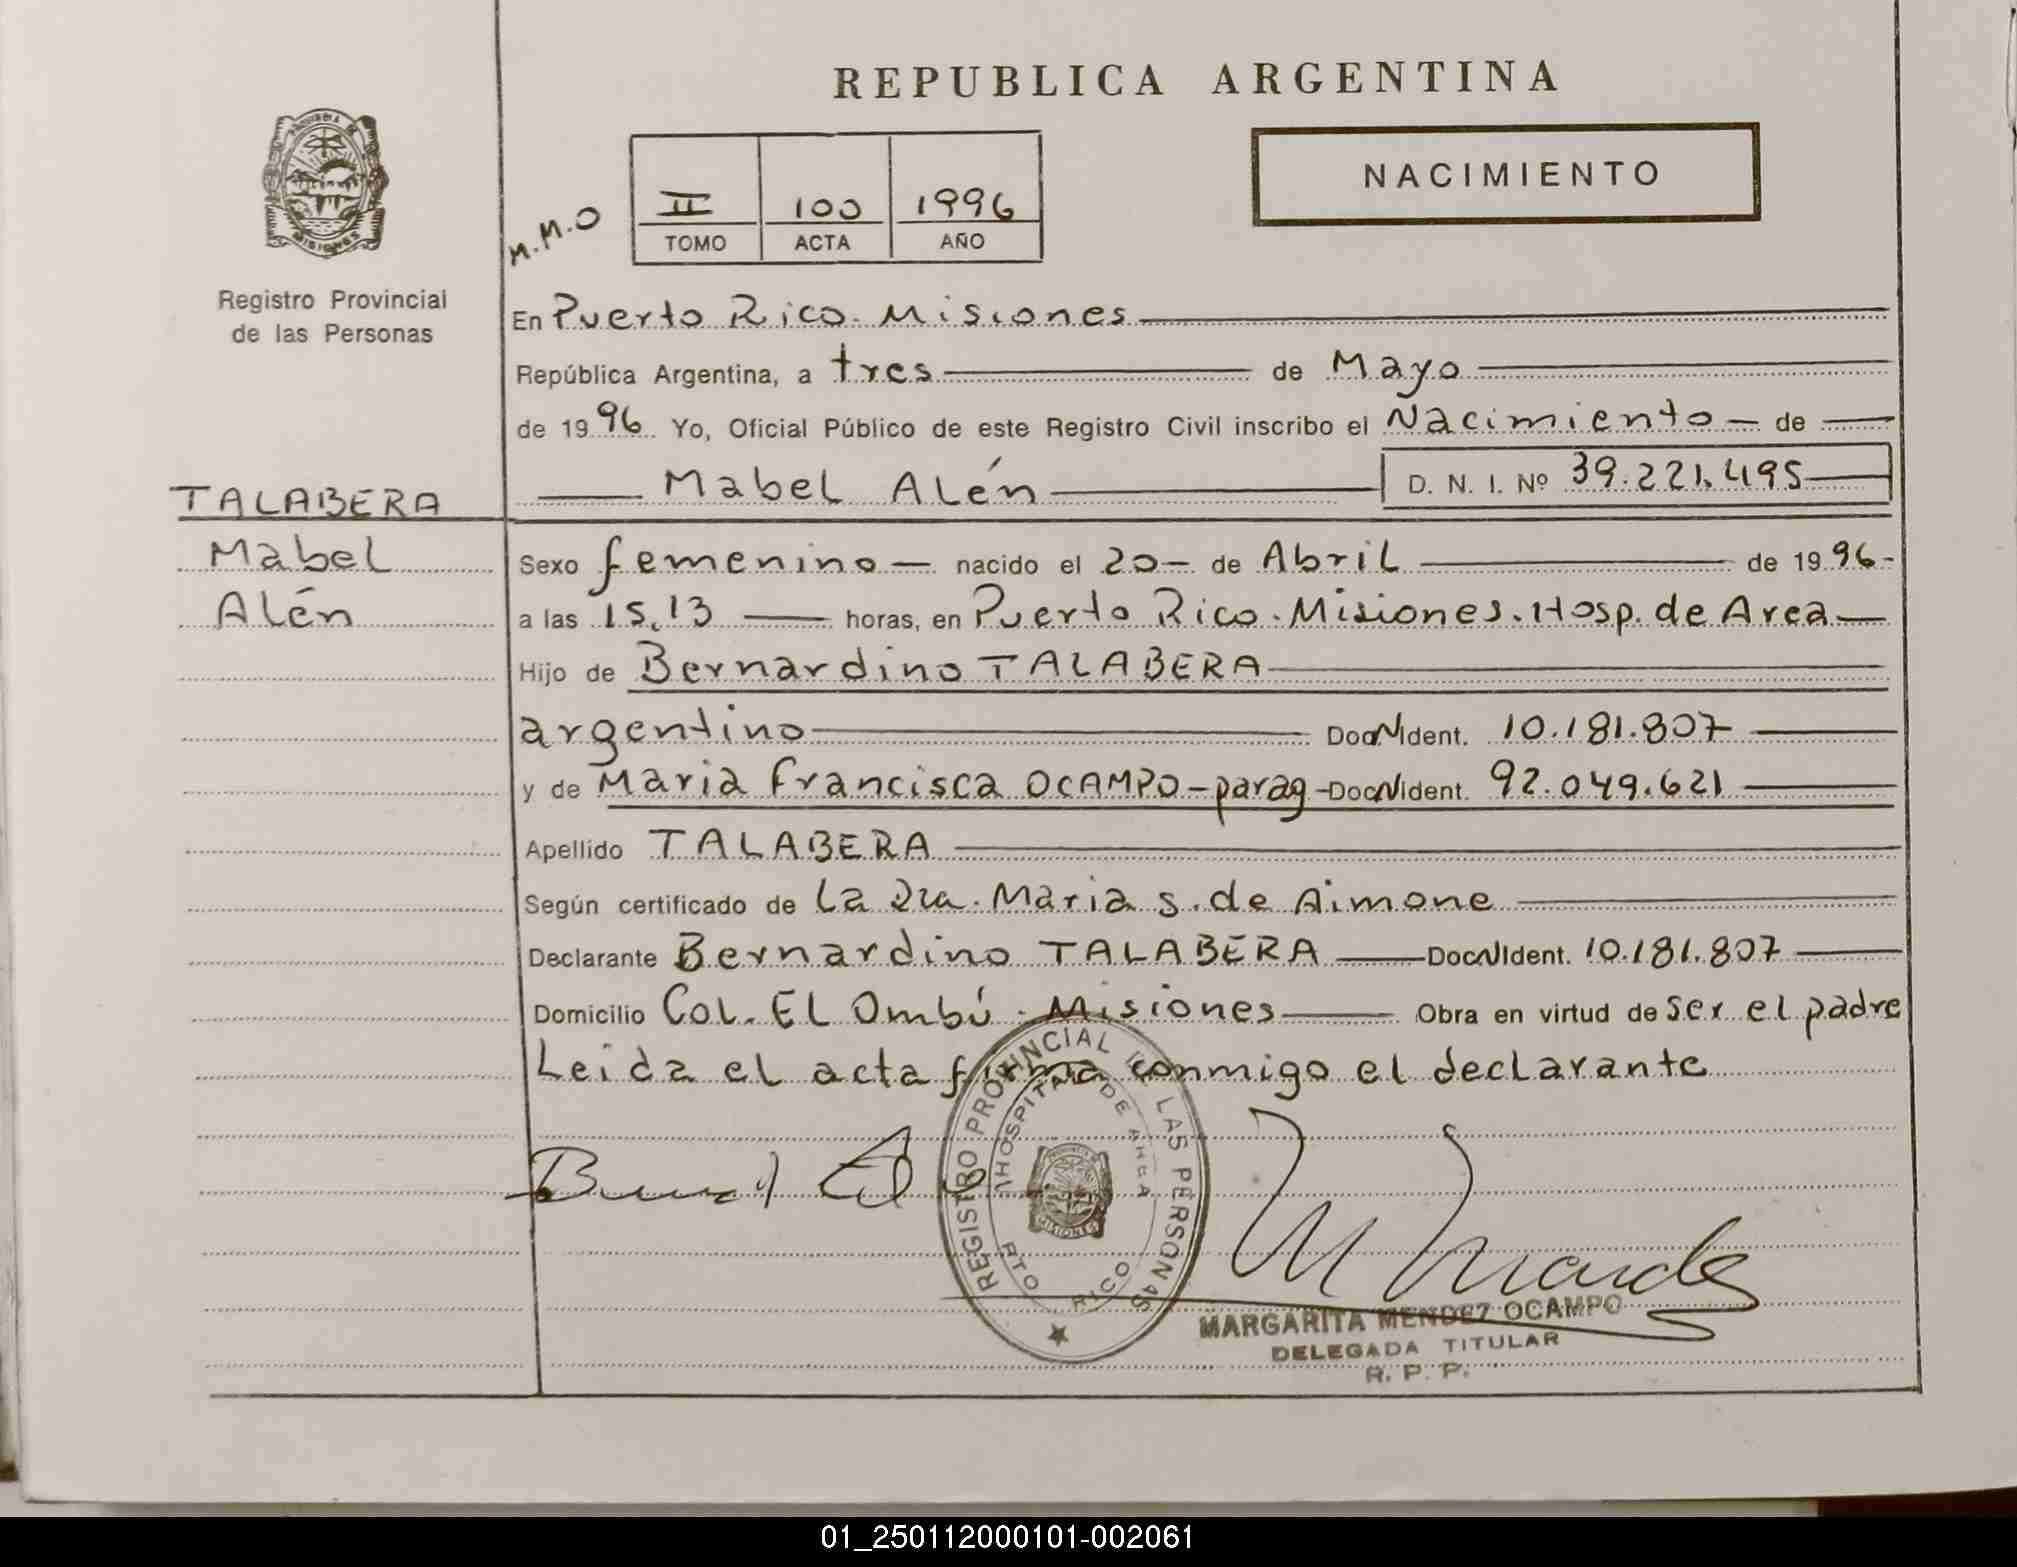 REPUBLICA ARGENTINA
PROVINCIA DE
MISIONES
Registro Provincial
de las Personas
M.M.O
II 100 1996
TOMO ACTA AÑO
NACIMIENTO
En Puerto Rico. Misiones
República Argentina, a tres de Mayo
de 1996 Yo, Oficial Público de este Registro Civil inscribo el Nacimiento de
Mabel Alén D. N. I. Nº 39.221.495
TALABERA
Mabel
Alén
Sexo femenino nacido el 20 de Abril de 1996
a las 15.13 horas, en Puerto Rico. Misiones. Hosp. de Area
Hijo de Bernardino TALABERA
argentino Doc N Ident. 10.181.807
y de Maria Francisca OCAMPO-parag-Doc N Ident. 92.049.621
Apellido TALABERA
Según certificado de La Dra. Maria S. de Aimone
Declarante Bernardino TALABERA Doc N Ident. 10.181.807
Domicilio Col. El Ombú. Misiones Obra en virtud de ser el padre
Leida el acta firma conmigo el declarante
REGISTRO PROVINCIAL DE LAS PERSONAS
HOSPITAL DE AREA
PTO RICO
MISIONES
MARGARITA MENDEZ OCAMPO
DELEGADA TITULAR
R. P. P.
01_250112000101-002061